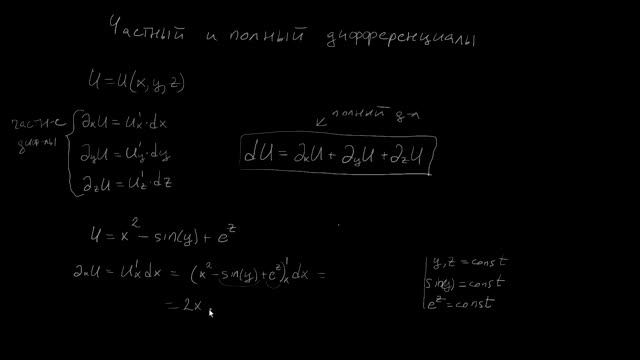 Частный и полный дифференциалы
U = U(x, y, z)
частн-е
диф-лы
∂ₓU = U'ₓ · dx
∂ᵧU = U'ᵧ · dy
∂_zU = U'_z · dz
полный д-л
dU = ∂ₓU + ∂ᵧU + ∂_zU
U = x² − sin(y) + e^z
∂ₓU = U'ₓ dx = (x² − sin(y) + e^z)'ₓ dx =
= 2x
y, z = const
sin(y) = const
e^z = const